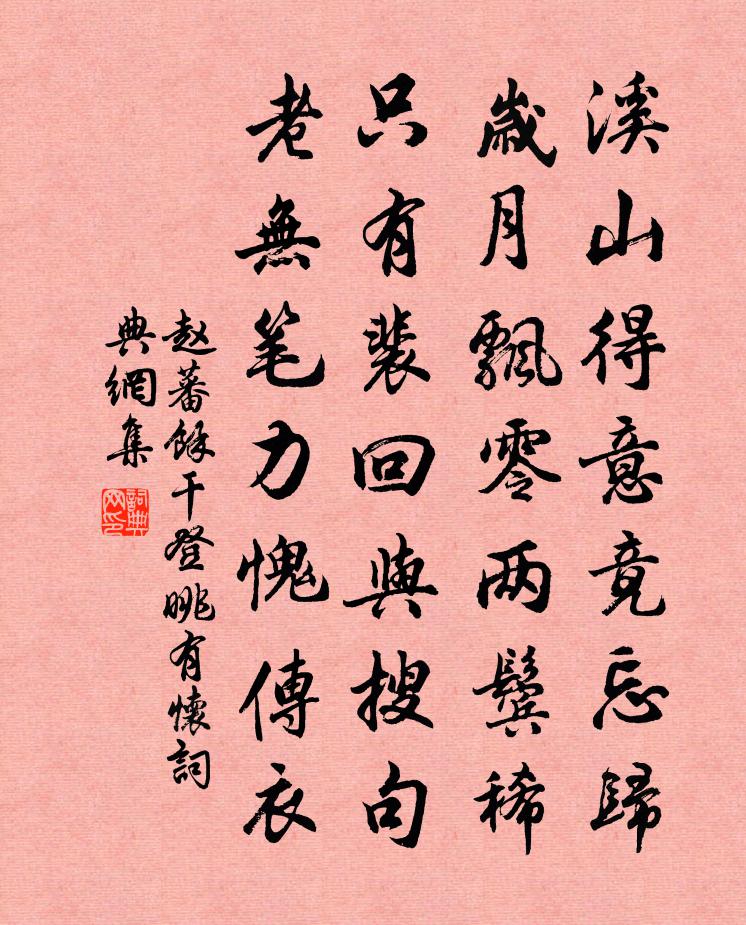 溪山得意竟忘歸
歲月飄零兩鬢稀
只有裴回與搜句
老無笔力愧傳衣
赵蕃餘干登眺有懷詞
典網集
詞典
网印